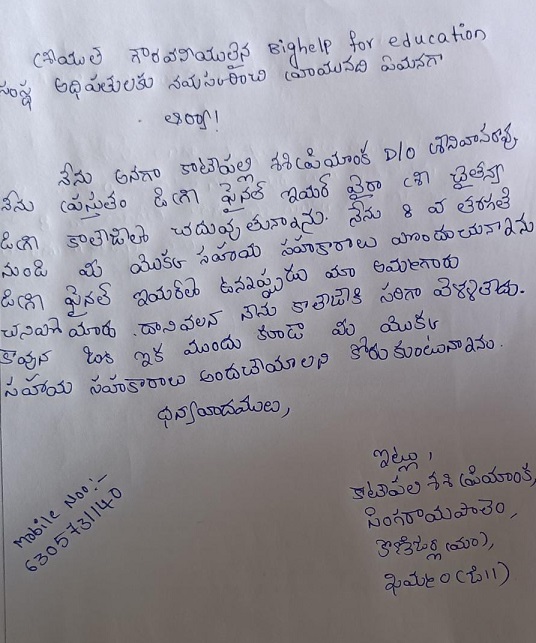 శ్రీయుత గౌరవనీయులైన Bighelp for education
సంస్థ అధిపతులకు నమస్కరించి వ్రాయునది ఏమనగా
ఆర్యా!
నేను అనగా కాటేపల్లి శశిప్రియాంక D/O శ్రీనివాసరావు
నేను ప్రస్తుతం డిగ్రీ ఫైనల్ ఇయర్ వైరా శ్రీ చైతన్య
డిగ్రీ కాలేజిలో చదువుతున్నాను. నేను 8 వ తరగతి
నుండి మీ యొక్క సహాయ సహకారాలు పొందుచున్నాను
డిగ్రీ ఫైనల్ ఇయర్‌లో ఉన్నప్పుడు మా అమ్మగారు
చనిపోయారు. దానివలన నేను కాలేజికి సరిగా వెళ్ళలేదు.
కావున ఇక ముందు కూడా మీ యొక్క
సహాయ సహకారాలు అందచేయాలని కోరుకుంటున్నాను.
ధన్యవాదములు,
ఇట్లు,
కాటేపల్లి శశి ప్రియాంక,
సింగరాయపాలెం,
కొణిజర్ల (మం),
ఖమ్మం (డి11)
Mobile Noo:-
6305731140